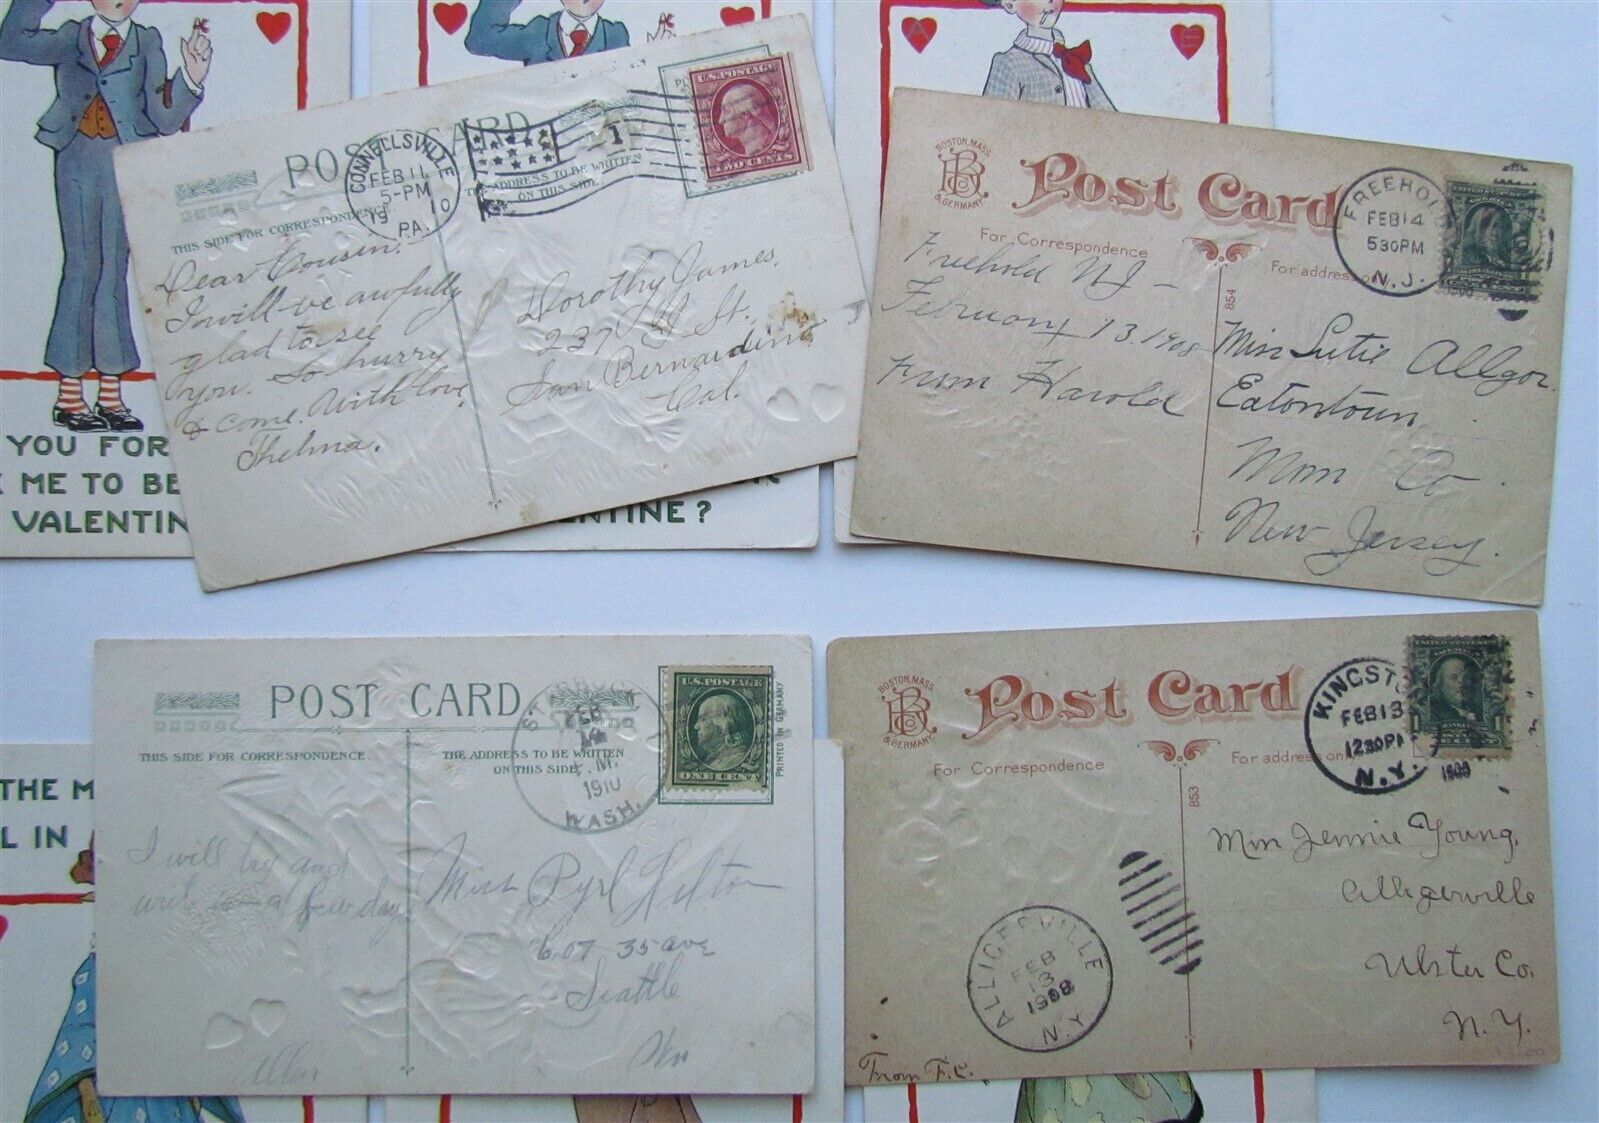 AE
AE
A E
YOU FOR
ME TO BE
VALENTIN
ENTINE?
THE M
L IN
POST CARD
CONNELLSVILLE
FEB 11
5-PM
1910
PA.
1
U.S. POSTAGE
TWO CENTS
THIS SIDE FOR CORRESPONDENCE
THE ADDRESS TO BE WRITTEN
ON THIS SIDE
Dear Cousin.
I will be awfully
glad to see
you. So hurry
& come. With love,
Thelma.
Dorothy James,
237 G St.
San Bernardino
Cal.
BOSTON, MASS.
& GERMANY.
Post Card
For Correspondence
For address only
FREEHOLD
FEB 14
530PM
N.J.
854
Freehold NJ -
February 13 1908
From Harold
Miss Sutie Allgor.
Eatontown
Mon Co.
New Jersey.
POST CARD
THIS SIDE FOR CORRESPONDENCE.
THE ADDRESS TO BE WRITTEN
ON THIS SIDE.
FEB
1910
WASH.
U.S. POSTAGE
ONE CENT
PRINTED IN GERMANY
I will try and
write in a few days
Allen
Miss Pyrl Hilton
607 35 ave
Seattle
Wn
BOSTON, MASS.
& GERMANY.
Post Card
For Correspondence
For address only
KINGSTO
FEB 13
1230PM
N.Y.
1908
853
Miss Jennie Young,
Alligerville
Ulster Co.
N.Y.
ALLIGERVILLE
FEB
13
1908
N.Y.
From F.C.